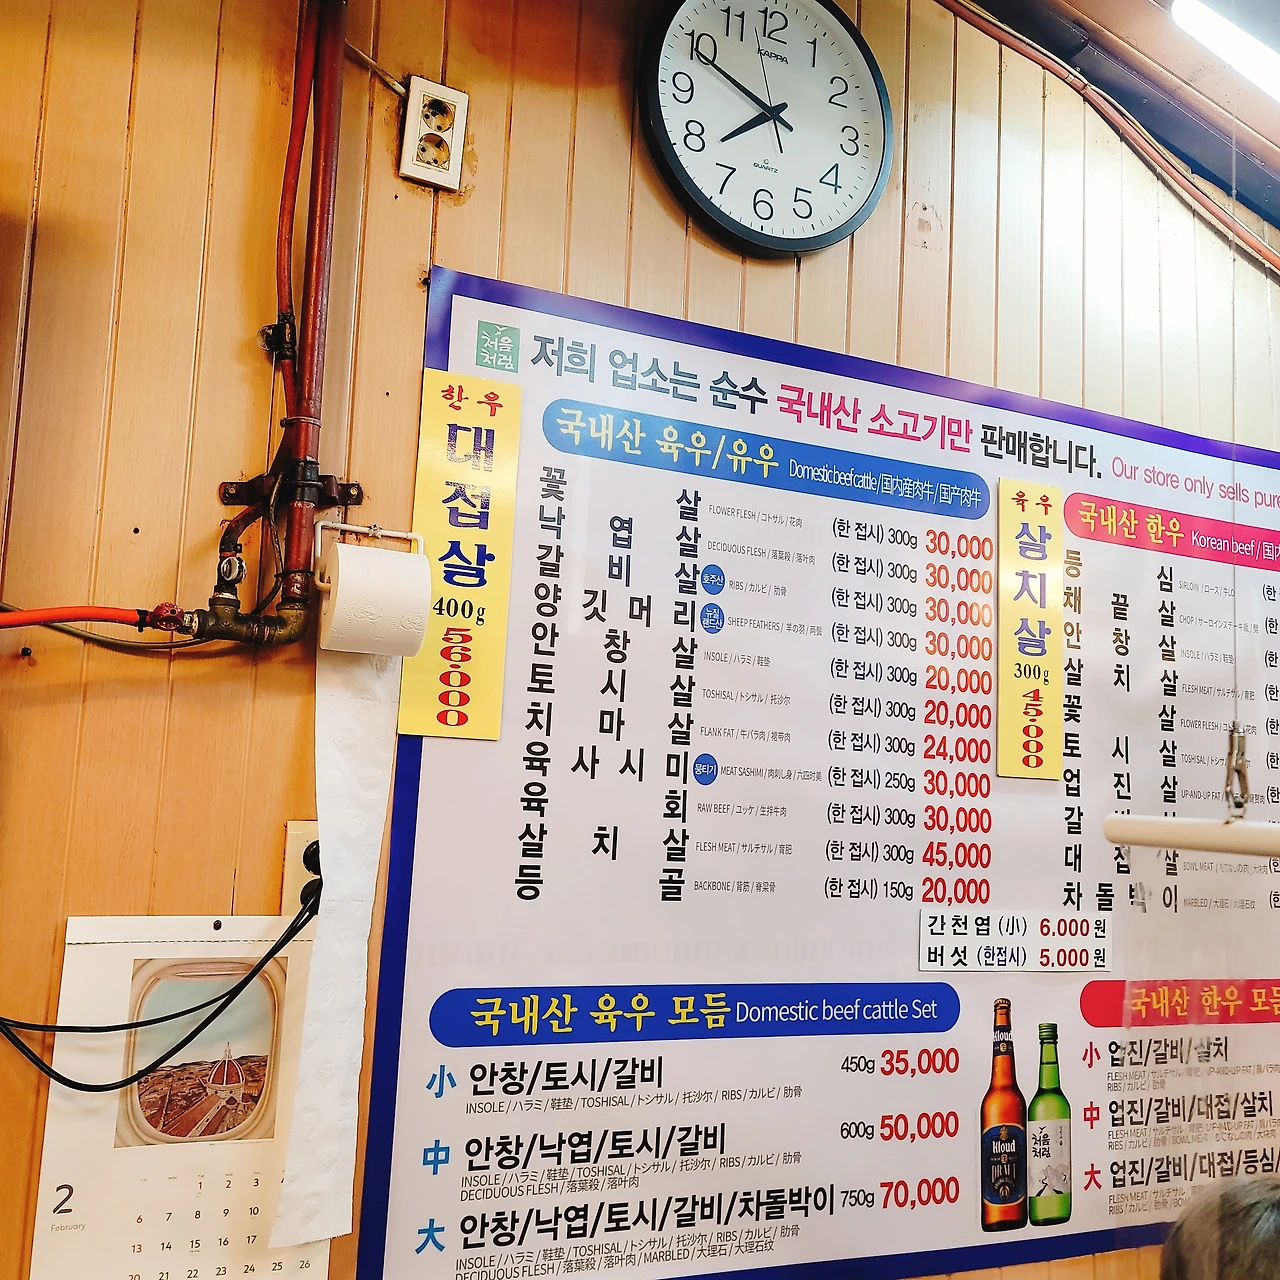 11 12 1
10 2
9 3
8 4
7 6 5
KAPPA
QUARTZ
처음
처럼
저희 업소는 순수 국내산 소고기만 판매합니다.
Our store only sells pur
한우
대접살
400g
56.000
국내산 육우/유우 Domestic beef cattle/国内産肉牛/国产肉牛
꽃 살 FLOWER FLESH / コトサル / 花肉 (한 접시) 300g 30,000
낙 엽 살 DECIDUOUS FLESH / 落葉殺 / 落叶肉 (한 접시) 300g 30,000
갈 비 살 호주산 RIBS / カルビ / 肋骨 (한 접시) 300g 30,000
양 깃 머 리 뉴질랜드산 SHEEP FEATHERS / 羊の羽 / (한 접시) 300g 30,000
안 창 살 INSOLE / ハラミ / 鞋垫 (한 접시) 300g 20,000
토 시 살 TOSHISAL / トシサル / 托沙尔 (한 접시) 300g 20,000
치 마 살 FLANK FAT / 牛バラ肉 / 裙带肉 (한 접시) 300g 24,000
육 사 시 미 뭉티기 MEAT SASHIMI / 肉刺し身 / 六四时美 (한 접시) 250g 30,000
육 회 RAW BEEF / ユッケ / 生拌牛肉 (한 접시) 300g 30,000
살 치 살 FLESH MEAT / サルチサル / 育肥 (한 접시) 300g 45,000
등 골 BACKBONE / 背筋 / 脊梁骨 (한 접시) 150g 20,000
간천엽 (小) 6.000원
버섯 (한접시) 5,000원
육우
살치살
300g
45.000
국내산 한우 Korean beef / 国内
등 심 SIRLOIN / ロース / 牛 (한
채 끝 살 CHOP / サーロインステーキ
안 창 살 INSOLE / ハラミ / 鞋垫 (한
살 치 살 FLESH MEAT / サルチサル / 育肥 (한
꽃 살 FLOWER FLESH / 花肉 (한
토 시 살 TOSHISAL / (한
업 진 살 UP-AND-UP FAT / (한
갈
대 접 살 BOWL MEAT / もてなしの肉 / (한
차 돌 박 이 MARBLED / 大理石 / 大理石纹 (한
국내산 육우 모듬 Domestic beef cattle Set
小 안창/토시/갈비 450g 35,000
INSOLE / ハラミ / 鞋垫 / TOSHISAL / トシサル / 托沙尔 / RIBS / カルビ / 肋骨
中 안창/낙엽/토시/갈비 600g 50,000
INSOLE / ハラミ / 鞋垫 / TOSHISAL / トシサル / 托沙尔 / RIBS / カルビ / 肋骨
DECIDUOUS FLESH / 落葉殺 / 落叶肉
大 안창/낙엽/토시/갈비/차돌박이 750g 70,000
INSOLE / ハラミ / 鞋垫 / TOSHISAL / トシサル / 托沙尔 / RIBS / カルビ / 肋骨
DECIDUOUS FLESH / 落葉殺 / 落叶肉 / MARBLED / 大理石 / 大理石纹
Kloud
Kloud
DRAFT
처음
처럼
국내산 한우 모듬
小 업진/갈비/살치
FLESH MEAT / サルチサル / 育肥 / UP-AND-UP FAT /
RIBS / カルビ / 肋骨
中 업진/갈비/대접/살치
FLESH MEAT / サルチサル / 育肥 / UP-AND-UP FAT /
RIBS / カルビ / 肋骨 / BOWL MEAT / もてなしの肉 /
大 업진/갈비/대접/등심/
FLESH MEAT / サルチサル
RIBS / カルビ / 肋骨
2
February
1 2 3
6 7 8 9 10
13 14 15 16 17
20 21 22 23 24 25 26